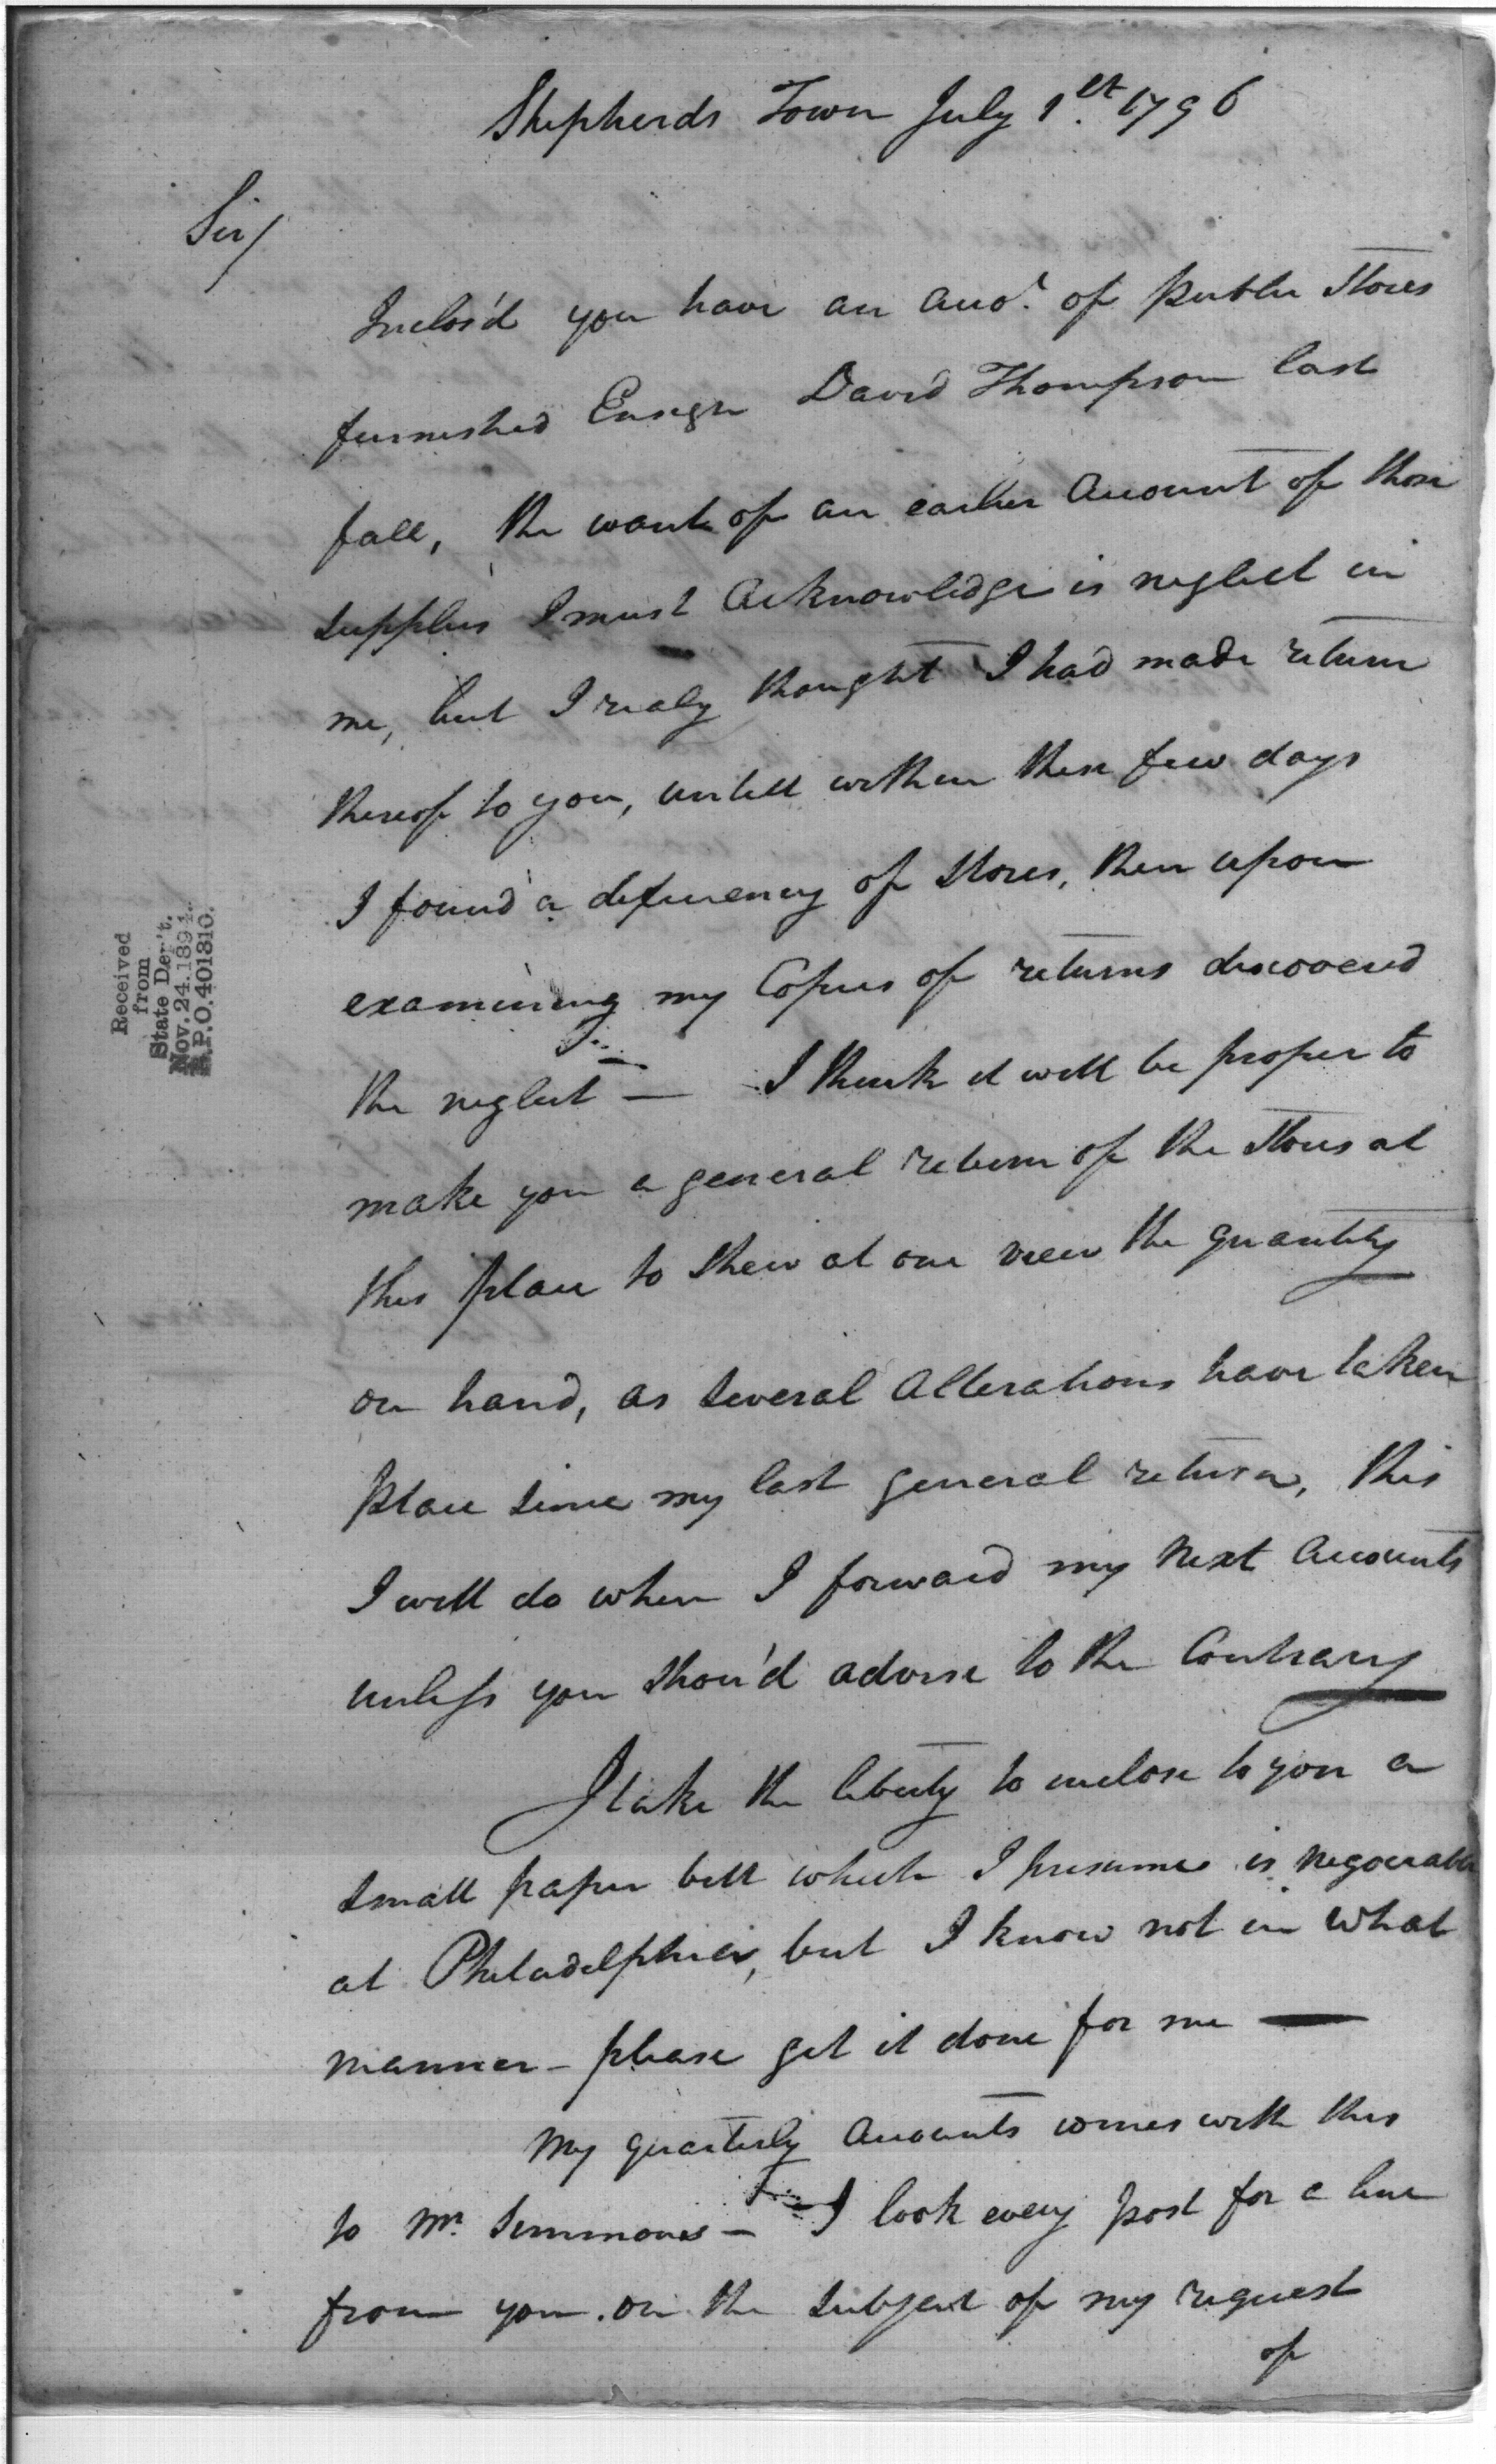 Shepherds Town July 1st. 1796
Sir/
Inclos'd you have an Acco.t of Public Stores
furnished Ensign David Thompson last
fall, the want of an earlier Account of those
supplies I must Acknowledge is neglect in
me, but I realy thought I had made return
thereof to you, untill within these few days
I found a deficiency of Stores, then upon
examining my Copies of returns discovered
the neglect — I think it will be proper to
make you a general return of the Stores at
this place to shew at one view the quantity
on hand, as several Alterations have taken
place since my last general return, this
I will do when I forward my next Accounts
unless you shou'd advise to the Contrary
I take the liberty to inclose to you a
small paper bill which I presume is negociable
at Philadelphia, but I know not in what
manner – please get it done for me —
My quarterly Accounts comes with this
to Mr. Simmons – I look every post for a line
from you on the subject of my request
of
Received
from
State Dep't.
Nov. 24. 1894.
R.P.O. 401810.